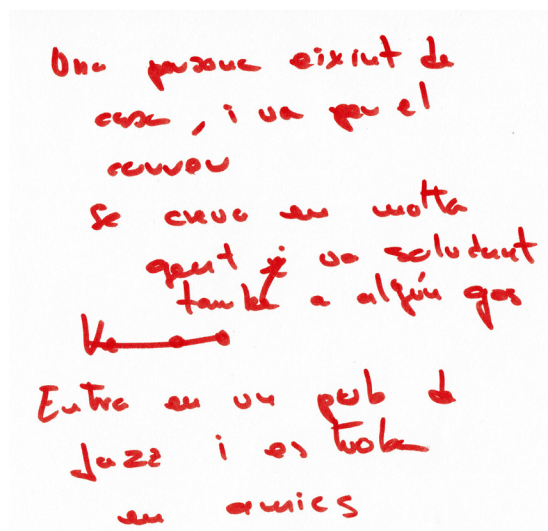 Una persona eixint de
casa, i va per el
carrer
Se creua en molta
gent i va saludant
també a algún gos
Entra en un pub de
Jazz i es troba
en amics